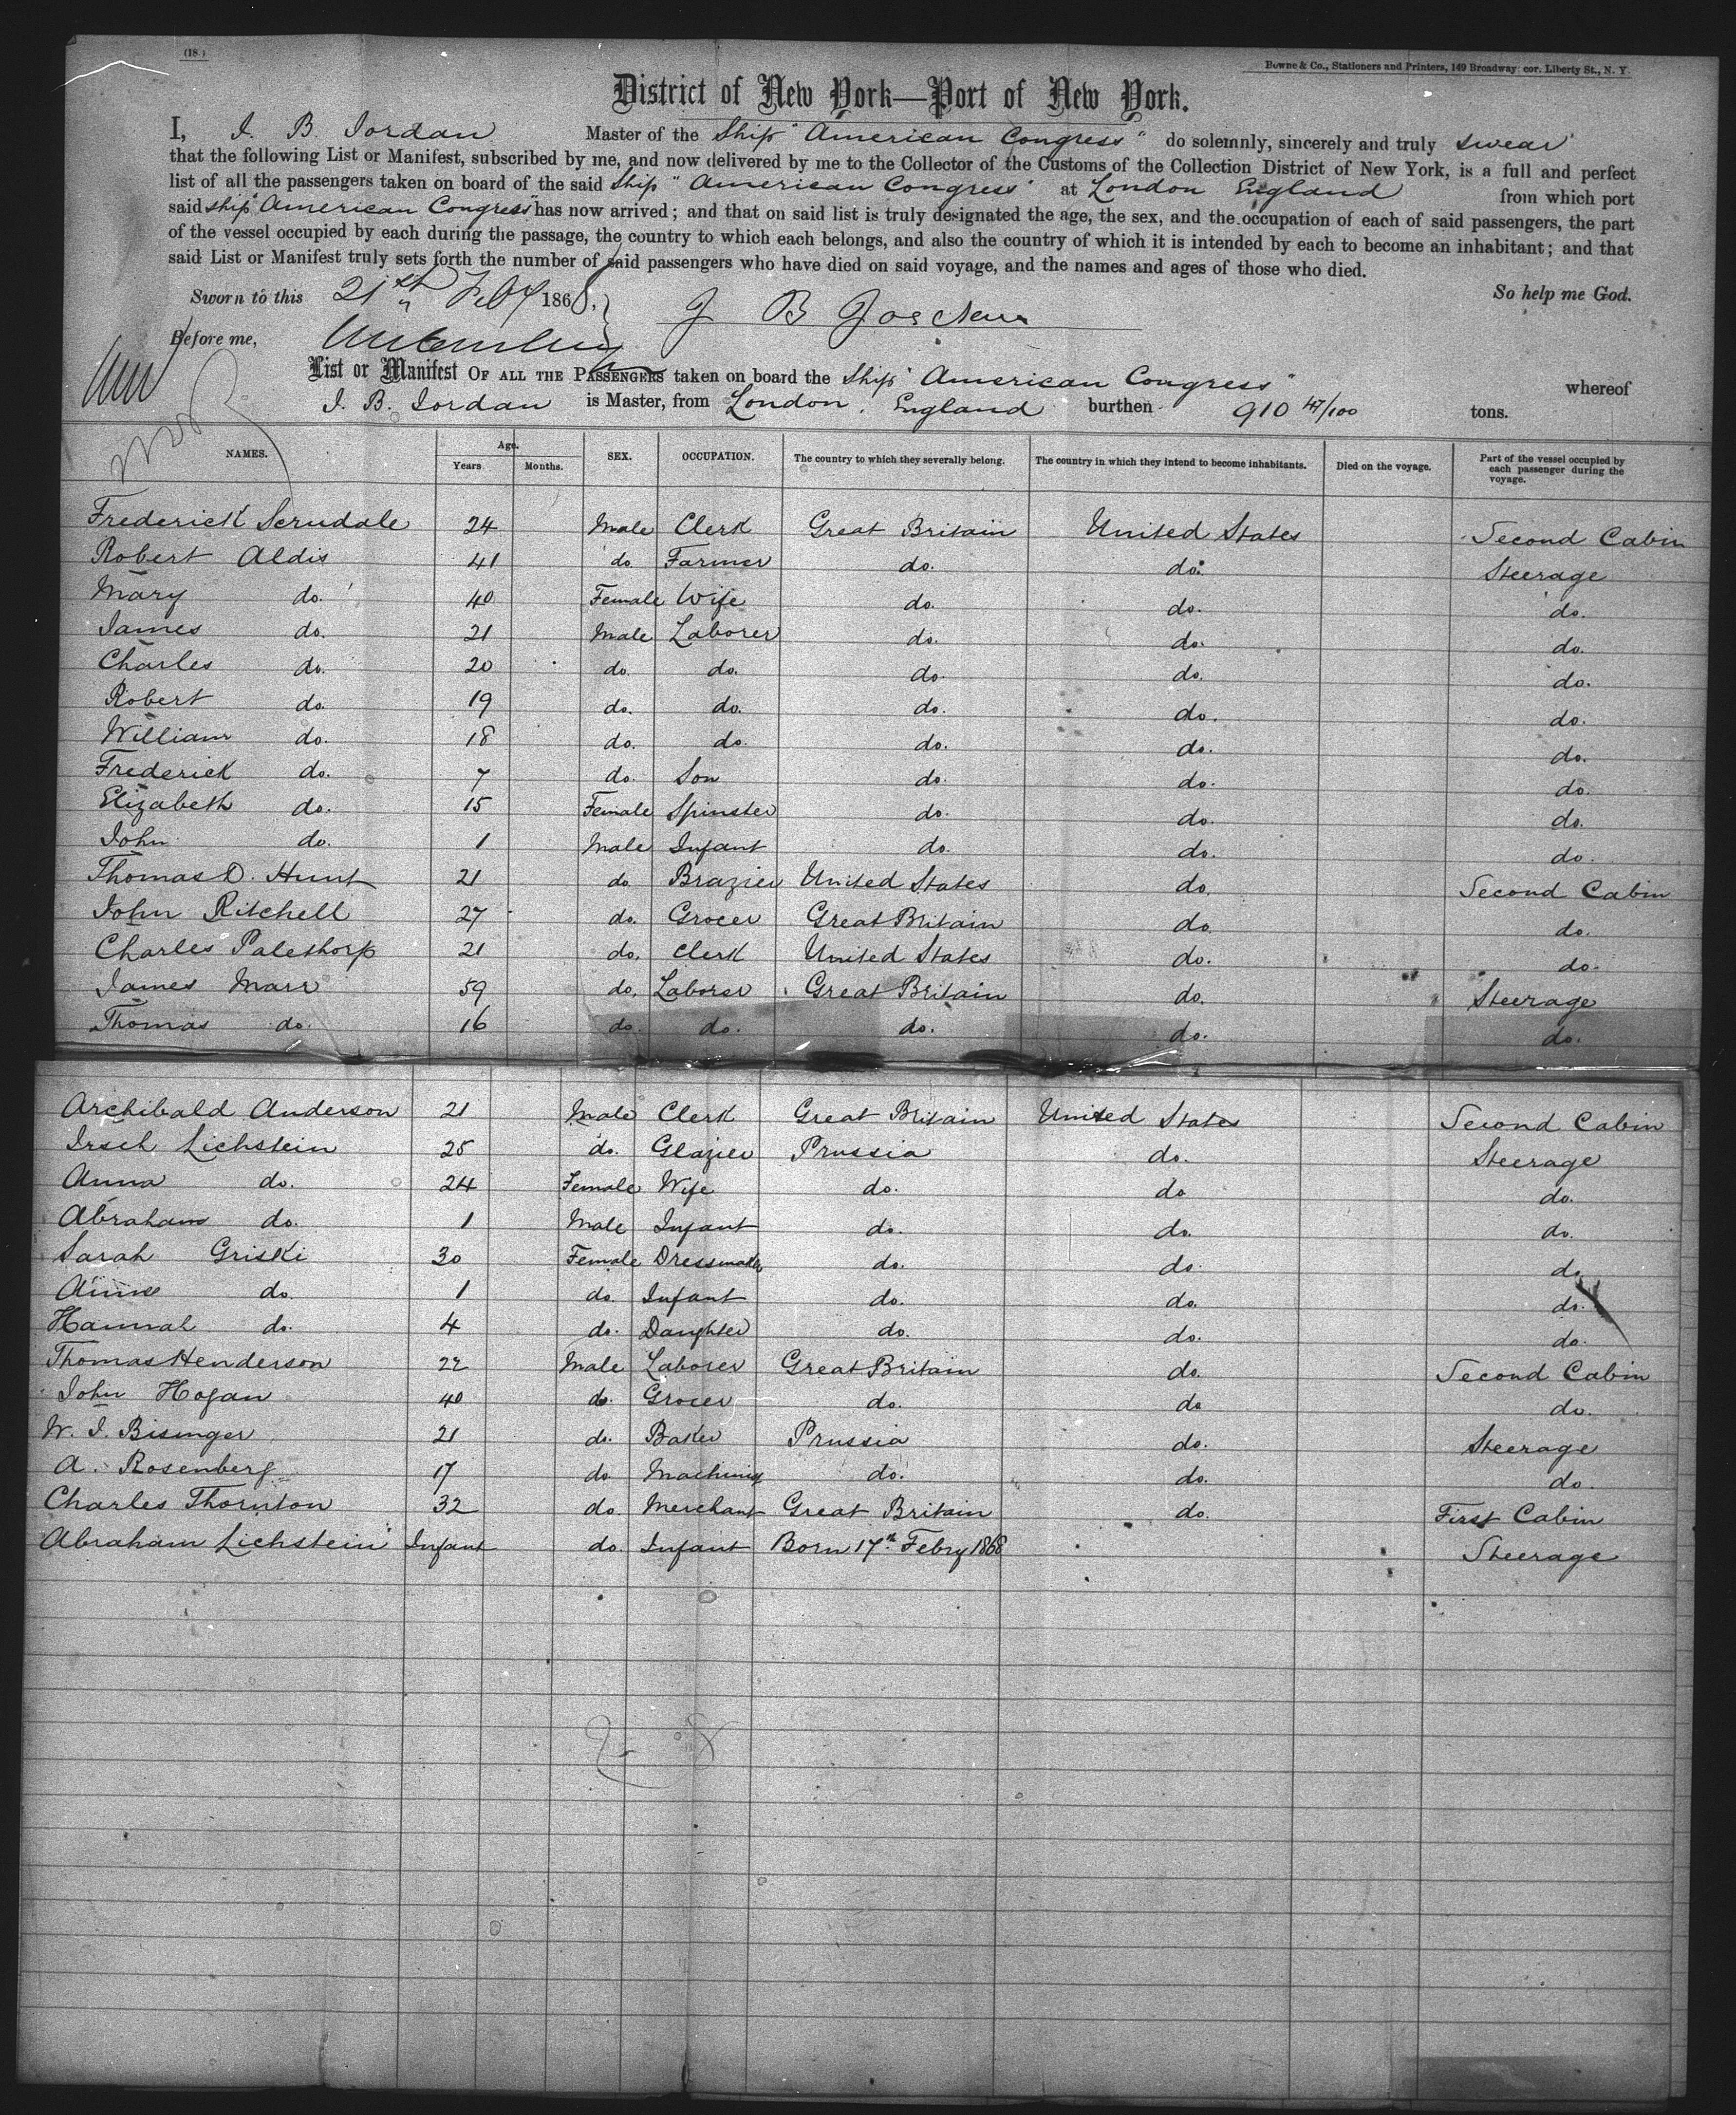 (18.)
Bowne & Co., Stationers and Printers, 149 Broadway cor. Liberty St., N. Y.
District of New York—Port of New York.
I, J. B. Jordan Master of the Ship "American Congress" do solemnly, sincerely and truly swear
that the following List or Manifest, subscribed by me, and now delivered by me to the Collector of the Customs of the Collection District of New York, is a full and perfect
list of all the passengers taken on board of the said Ship "American Congress" at London England from which port
said ship "American Congress" has now arrived; and that on said list is truly designated the age, the sex, and the occupation of each of said passengers, the part
of the vessel occupied by each during the passage, the country to which each belongs, and also the country of which it is intended by each to become an inhabitant; and that
said List or Manifest truly sets forth the number of said passengers who have died on said voyage, and the names and ages of those who died.
So help me God.
Sworn to this 21st Feby 1868. J B Jordan
Before me,
List or Manifest OF ALL THE PASSENGERS taken on board the Ship "American Congress" whereof
J. B. Jordan is Master, from London, England burthen 910 47/100 tons.
NAMES. Age. Years Months. SEX. OCCUPATION. The country to which they severally belong. The country in which they intend to become inhabitants. Died on the voyage. Part of the vessel occupied by each passenger during the voyage.
Frederick Scrudale 24 Male Clerk Great Britain United States Second Cabin
Robert Aldis 41 do Farmer do. do. Steerage
Mary do. 40 Female Wife do. do. do.
James do. 21 Male Laborer do. do. do.
Charles do. 20 do. do. do. do. do.
Robert do. 19 do. do. do. do. do.
William do. 18 do. do. do. do. do.
Frederick do. 7 do. Son do. do. do.
Elizabeth do. 15 Female Spinster do. do. do.
John do. 1 Male Infant do. do. do.
Thomas D. Hunt 21 do Brazier United States do. Second Cabin
John Ritchell 27 do. Grocer Great Britain do do.
Charles Palethorp 21 do. Clerk United States do. do.
James Marr 59 do. Laborer Great Britain do. Steerage
Thomas do. 16 do. do. do. do. do.
Archibald Anderson 21 Male Clerk Great Britain United States Second Cabin
Irsch Lichstein 25 do. Glazier Prussia do. Steerage
Anna do. 24 Female Wife do. do do.
Abraham do. 1 Male Infant do. do. do.
Sarah Griski 30 Female Dressmaker do. do. do
Anne do. 1 do. Infant do. do. do.
Hannah do. 4 do. Daughter do. do. do.
Thomas Henderson 22 Male Laborer Great Britain do. Second Cabin
John Hogan 40 do. Grocer do. do do.
W. J. Bisinger 21 do. Baker Prussia do. Steerage
A. Rosenberg 17 do do. do. do.
Charles Thornton 32 do. Merchant Great Britain do. First Cabin
Abraham Lichstein Infant do. Infant Born 17th Febry 1868 Steerage